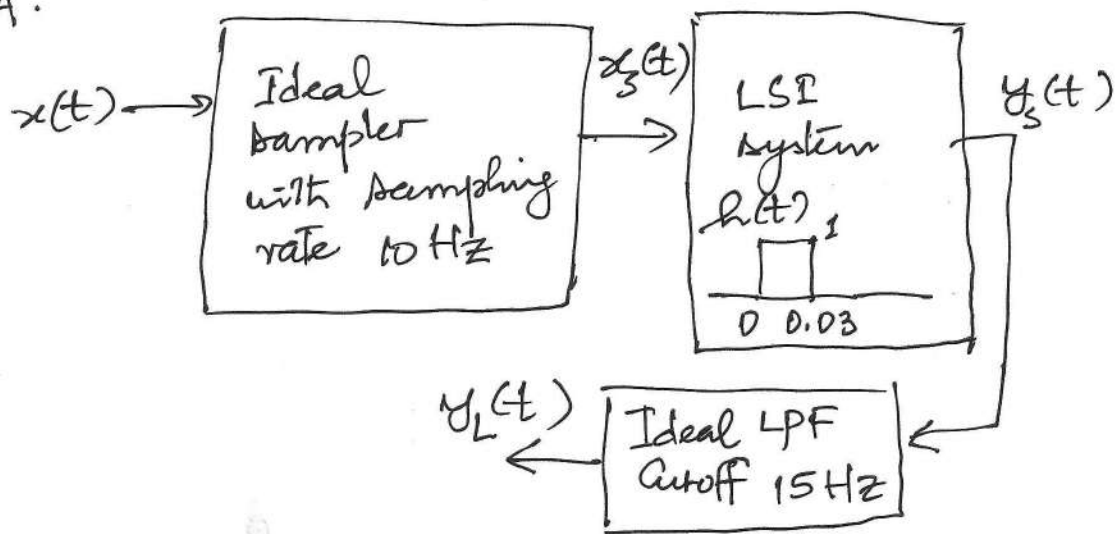 4.
x(t)
Ideal
sampler
with sampling
rate 10 Hz
x_s(t)
LSI
system
h(t)
1
0 0.03
y_s(t)
Ideal LPF
Cutoff 15 Hz
y_L(t)